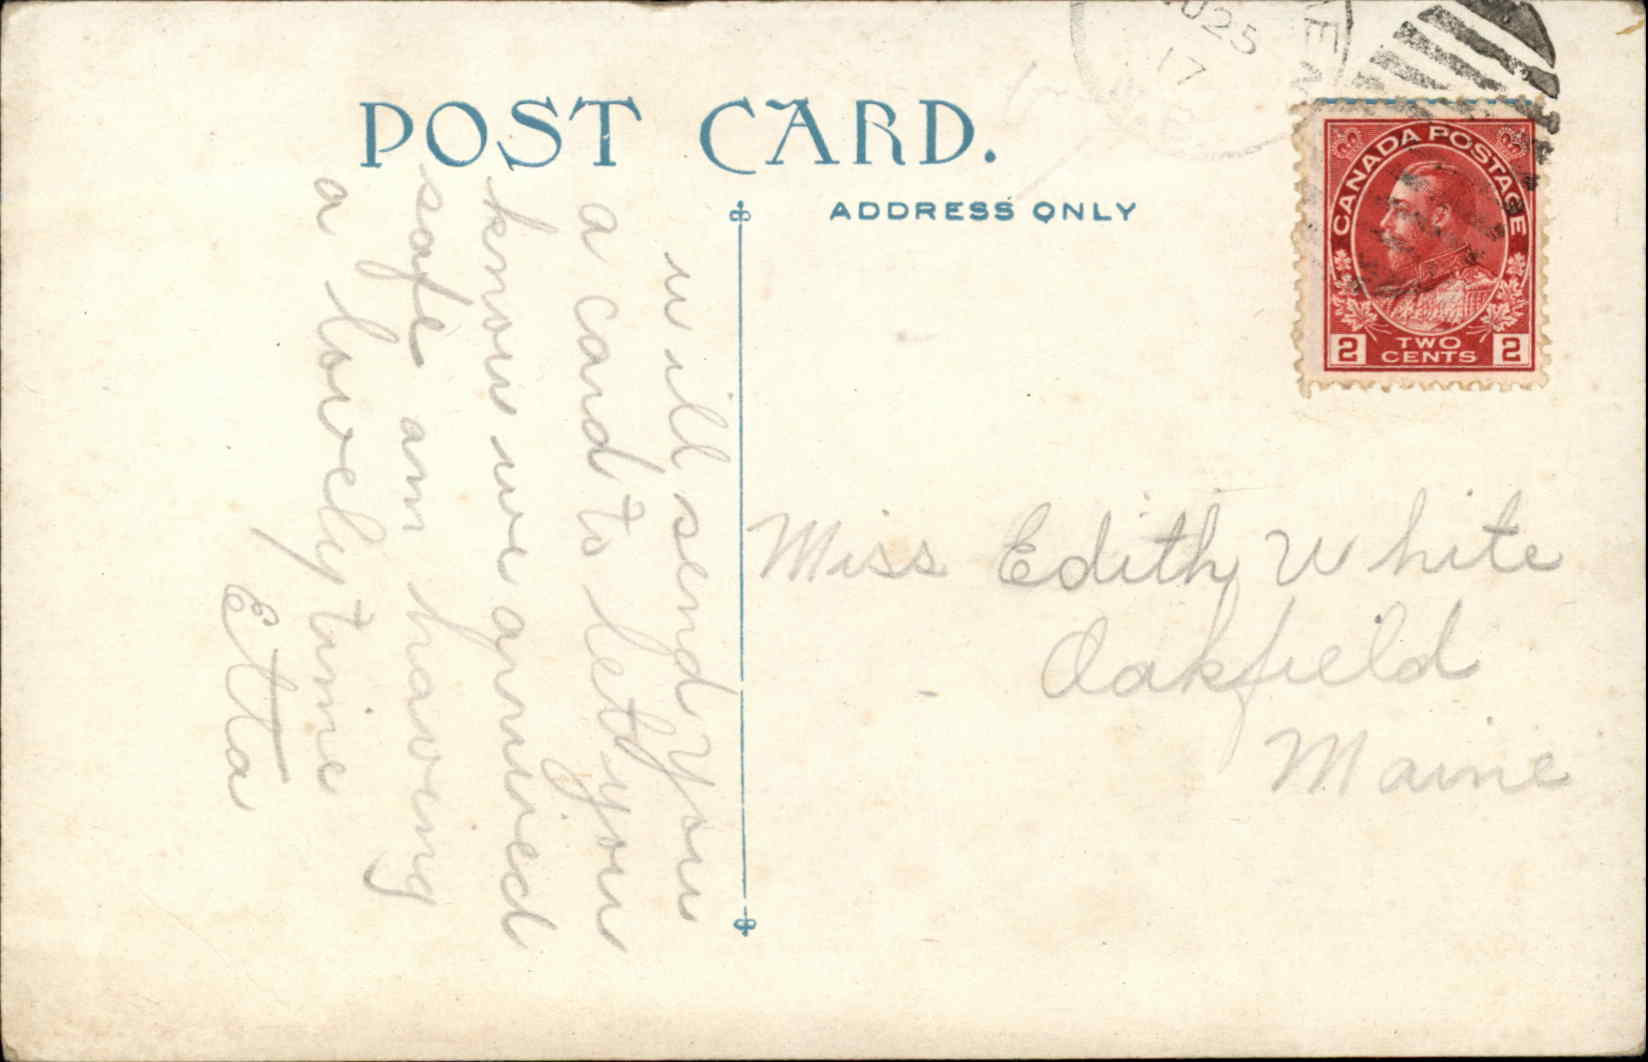 POST CARD.
ADDRESS ONLY
25
17
CANADA POSTAGE
2 TWO CENTS 2
will send you
a card to let you
know we arrived
safe am having
a lovely time
Etta
Miss Edith White
Oakfield
Maine